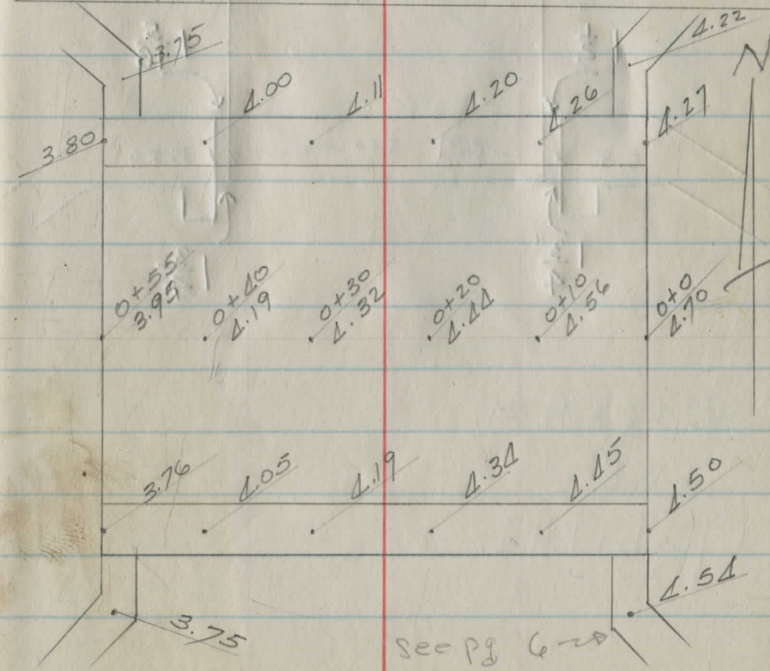 3.75
4.22
N
4.00
4.11
4.20
4.26
4.27
3.80
0+55
3.95
0+40
4.19
0+30
4.32
0+20
4.44
0+10
4.56
0+0
4.70
3.76
4.05
4.19
4.34
4.45
4.50
3.75
4.54
see pg 6